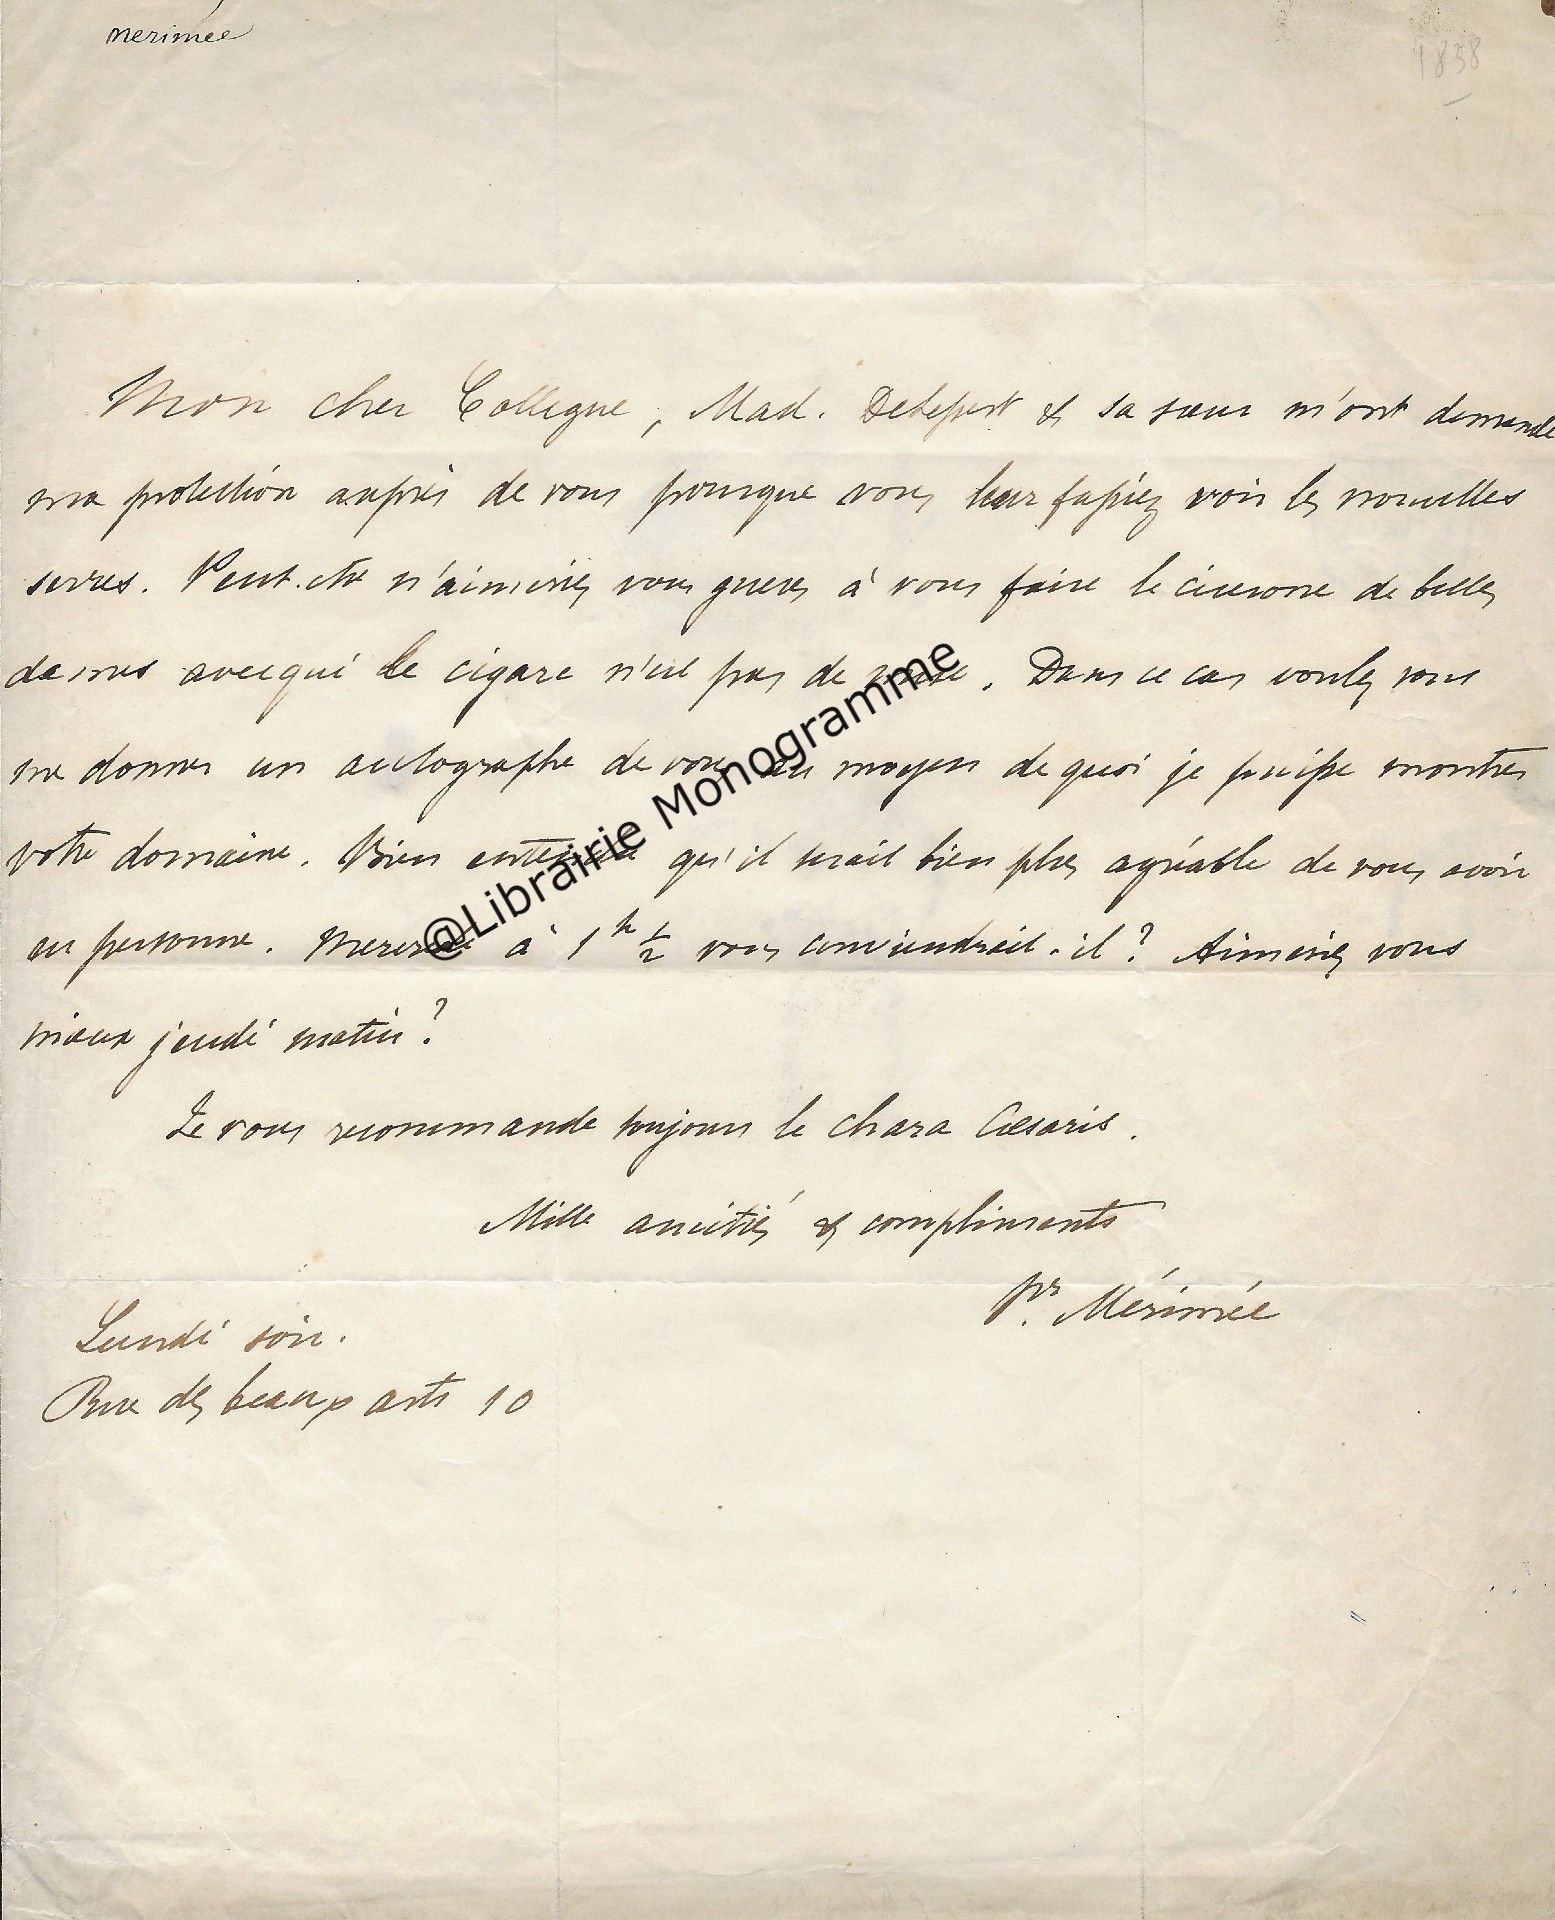 Merimée
1838
Mon cher Collegue, Mad. Delessert & sa sœur m'ont demandé
ma protection auprès de vous pourque vous leur fassiez voir les nouvelles
serres. Peut-etre n'aimeriez vous gueres à vous faire le cicerone de belles
dames avec qui le cigare n'est pas de mise. Dans ce cas voulez vous
me donner un autographe de vous au moyen de quoi je puisse montrer
votre domaine. Bien entendu qu'il serait bien plus agréable de vous avoir
en personne. Mercredi à 1h 1/2 vous conviendrait-il? Aimeriez vous
mieux jeudi matin?
Je vous recommande toujours le chara Cæsaris.
Mille amitiés & compliments
Pr. Mérimée
Lundi soir.
Rue des beaux arts 10
@Librairie Monogramme